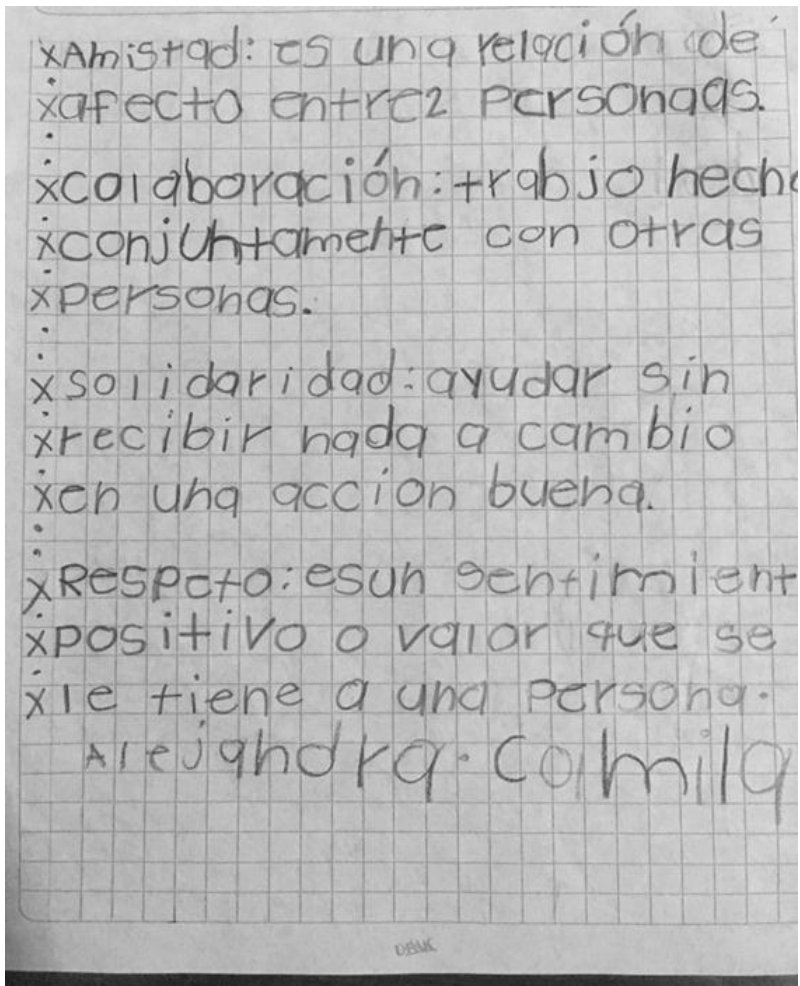 xAmistad: es una relación de
xafecto entre2 personaas.
xcolaboración: trabjo hecho
xconjuntamente con otras
xpersonas.
xsolidaridad: ayudar sin
xrecibir nada a cambio
xen una accion buena.
xRespeto: esun sentimient
xpositivo o valor que se
xle tiene a una persona.
Alejandra. Camila